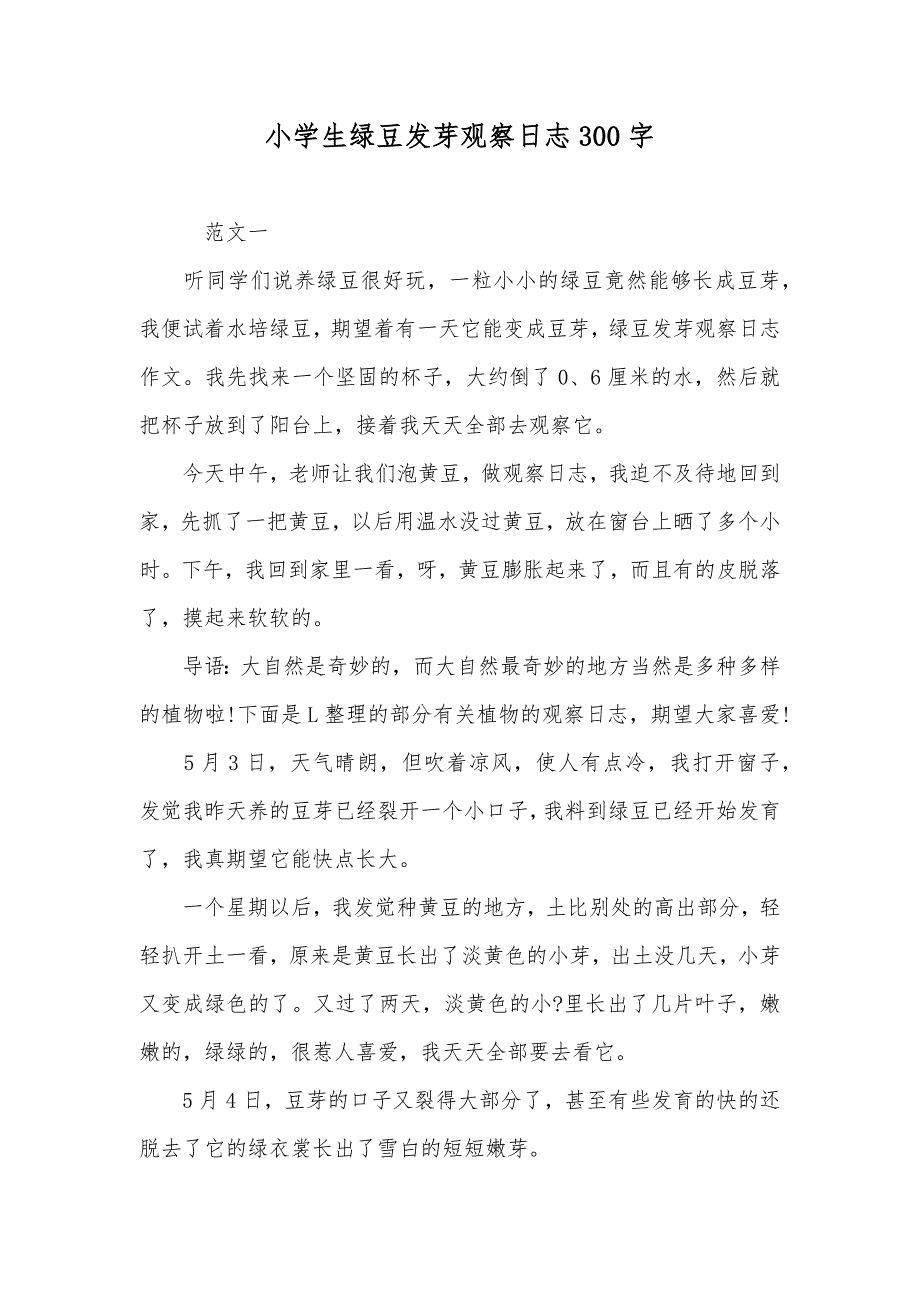 小学生绿豆发芽观察日志300字
范文一
听同学们说养绿豆很好玩，一粒小小的绿豆竟然能够长成豆芽，
我便试着水培绿豆，期望着有一天它能变成豆芽，绿豆发芽观察日志
作文。我先找来一个坚固的杯子，大约倒了0、6厘米的水，然后就
把杯子放到了阳台上，接着我天天全部去观察它。
今天中午，老师让我们泡黄豆，做观察日志，我迫不及待地回到
家，先抓了一把黄豆，以后用温水没过黄豆，放在窗台上晒了多个小
时。下午，我回到家里一看，呀，黄豆膨胀起来了，而且有的皮脱落
了，摸起来软软的。
导语:大自然是奇妙的，而大自然最奇妙的地方当然是多种多样
的植物啦!下面是L整理的部分有关植物的观察日志，期望大家喜爱!
5月3日，天气晴朗，但吹着凉风，使人有点冷，我打开窗子，
发觉我昨天养的豆芽已经裂开一个小口子，我料到绿豆已经开始发育
了，我真期望它能快点长大。
一个星期以后，我发觉种黄豆的地方，土比别处的高出部分，轻
轻扒开土一看，原来是黄豆长出了淡黄色的小芽，出土没几天，小芽
又变成绿色的了。又过了两天，淡黄色的小?里长出了几片叶子，嫩
嫩的，绿绿的，很惹人喜爱，我天天全部要去看它。
5月4日，豆芽的口子又裂得大部分了，甚至有些发育的快的还
脱去了它的绿衣裳长出了雪白的短短嫩芽。